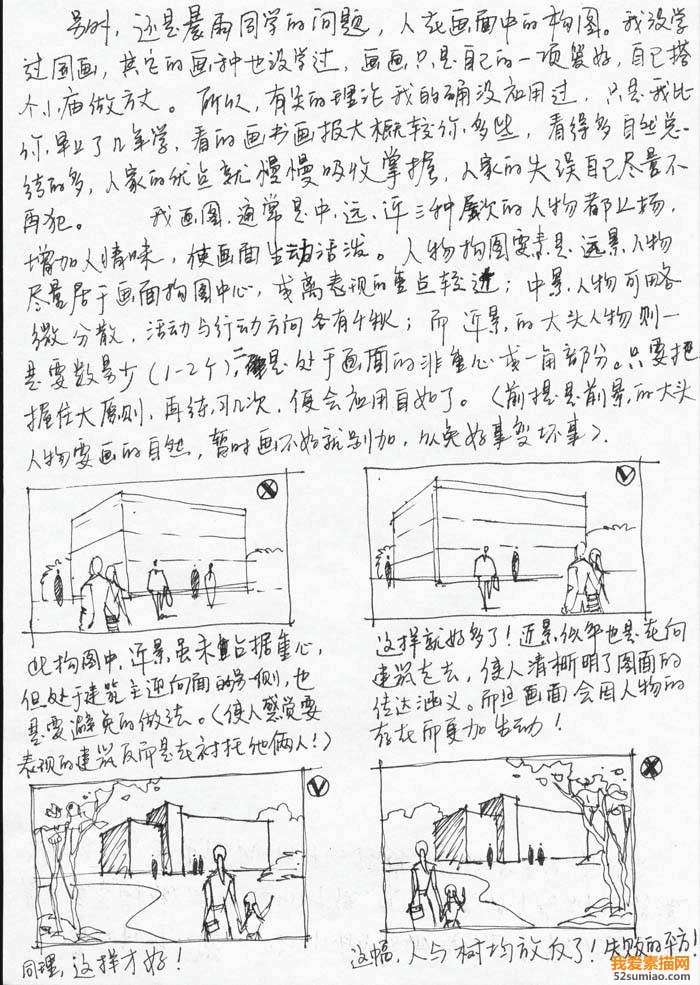 另外，还是暴雨同学的问题，人在画面中的构图。我没学
过国画，其它的画种也没学过，画画只是自己的一项爱好，自己搭
个小庙做方丈。所以，有关的理论我的确没应用过，只是我比
你早上了几年学，看的画书画报大概较你多些，看得多自然总
结的多，人家的优点就慢慢吸收掌握，人家的失误自己尽量不
再犯。 我画图通常是中、远、近三种层次的人物都上场，
增加人情味，使画面生动活泼。人物构图要素是远景人物
尽量居于画面构图中心，或离表现的重点较近；中景人物可略
微分散，活动与行动方向各有千秋；而近景的大头人物则一
是要数量少（1-2个），二是处于画面的非重心或一角部分。只要把
握住大原则，再练习几次，便会应用自如了。（前提是前景的大头
人物要画的自然，暂时画不好就别加，以免好事变坏事）.
此构图中，近景虽未占据重心，
但处于建筑主迎向面的另一侧，也
是要避免的做法。（使人感觉要
表现的建筑反而是在衬托他俩人！）
这样就好多了！近景似乎也是在向
建筑走去，使人清晰明了图面的
传达涵义。而且画面会因人物的
存在而更加生动！
同理，这样才好！
这幅，人与树均放反了！失败的平方！
我爱素描网
52sumiao.com